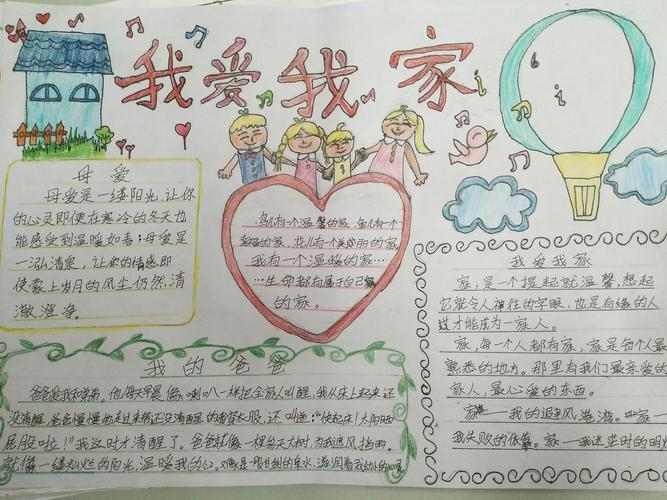 我爱我家
母爱
母爱是一缕阳光,让你
的心灵即使在寒冷的冬天也
能感受到温暖如春;母爱是
一泓清泉,让你的情感即
使蒙上岁月的风尘仍然清
澈澄净。
鸟儿有一个温馨的家,鱼儿有一个
的家,花儿有一个美丽的家,
我有一个温暖的家……
……生命都有属于自己
的家。
我爱我家
家,是一个提起就温馨,想起
它就令人神往的字眼,也是有缘的人
才能成为一家人。
家,每一个人都有家,家是每个人最
熟悉的地方。那里有我们最亲爱的
家人,最心爱的东西。
家——我的避风港湾。家一
我失败的依靠。家一我迷茫时的明灯
我的爸爸
爸爸爱我和弟弟,他每天早晨像喇叭一样把全家人叫醒,我从床上起来还
没清醒,爸爸慢慢地走过来帮还没清醒的我穿衣服,还叫道:“快起床!太阳晒
屁股啦!”我这时才清醒了。爸爸就像一棵参天大树为我遮风挡雨。
就像一缕灿烂的阳光,温暖我的心。又像是一股甘甜的泉水,滋润着我幼小的心